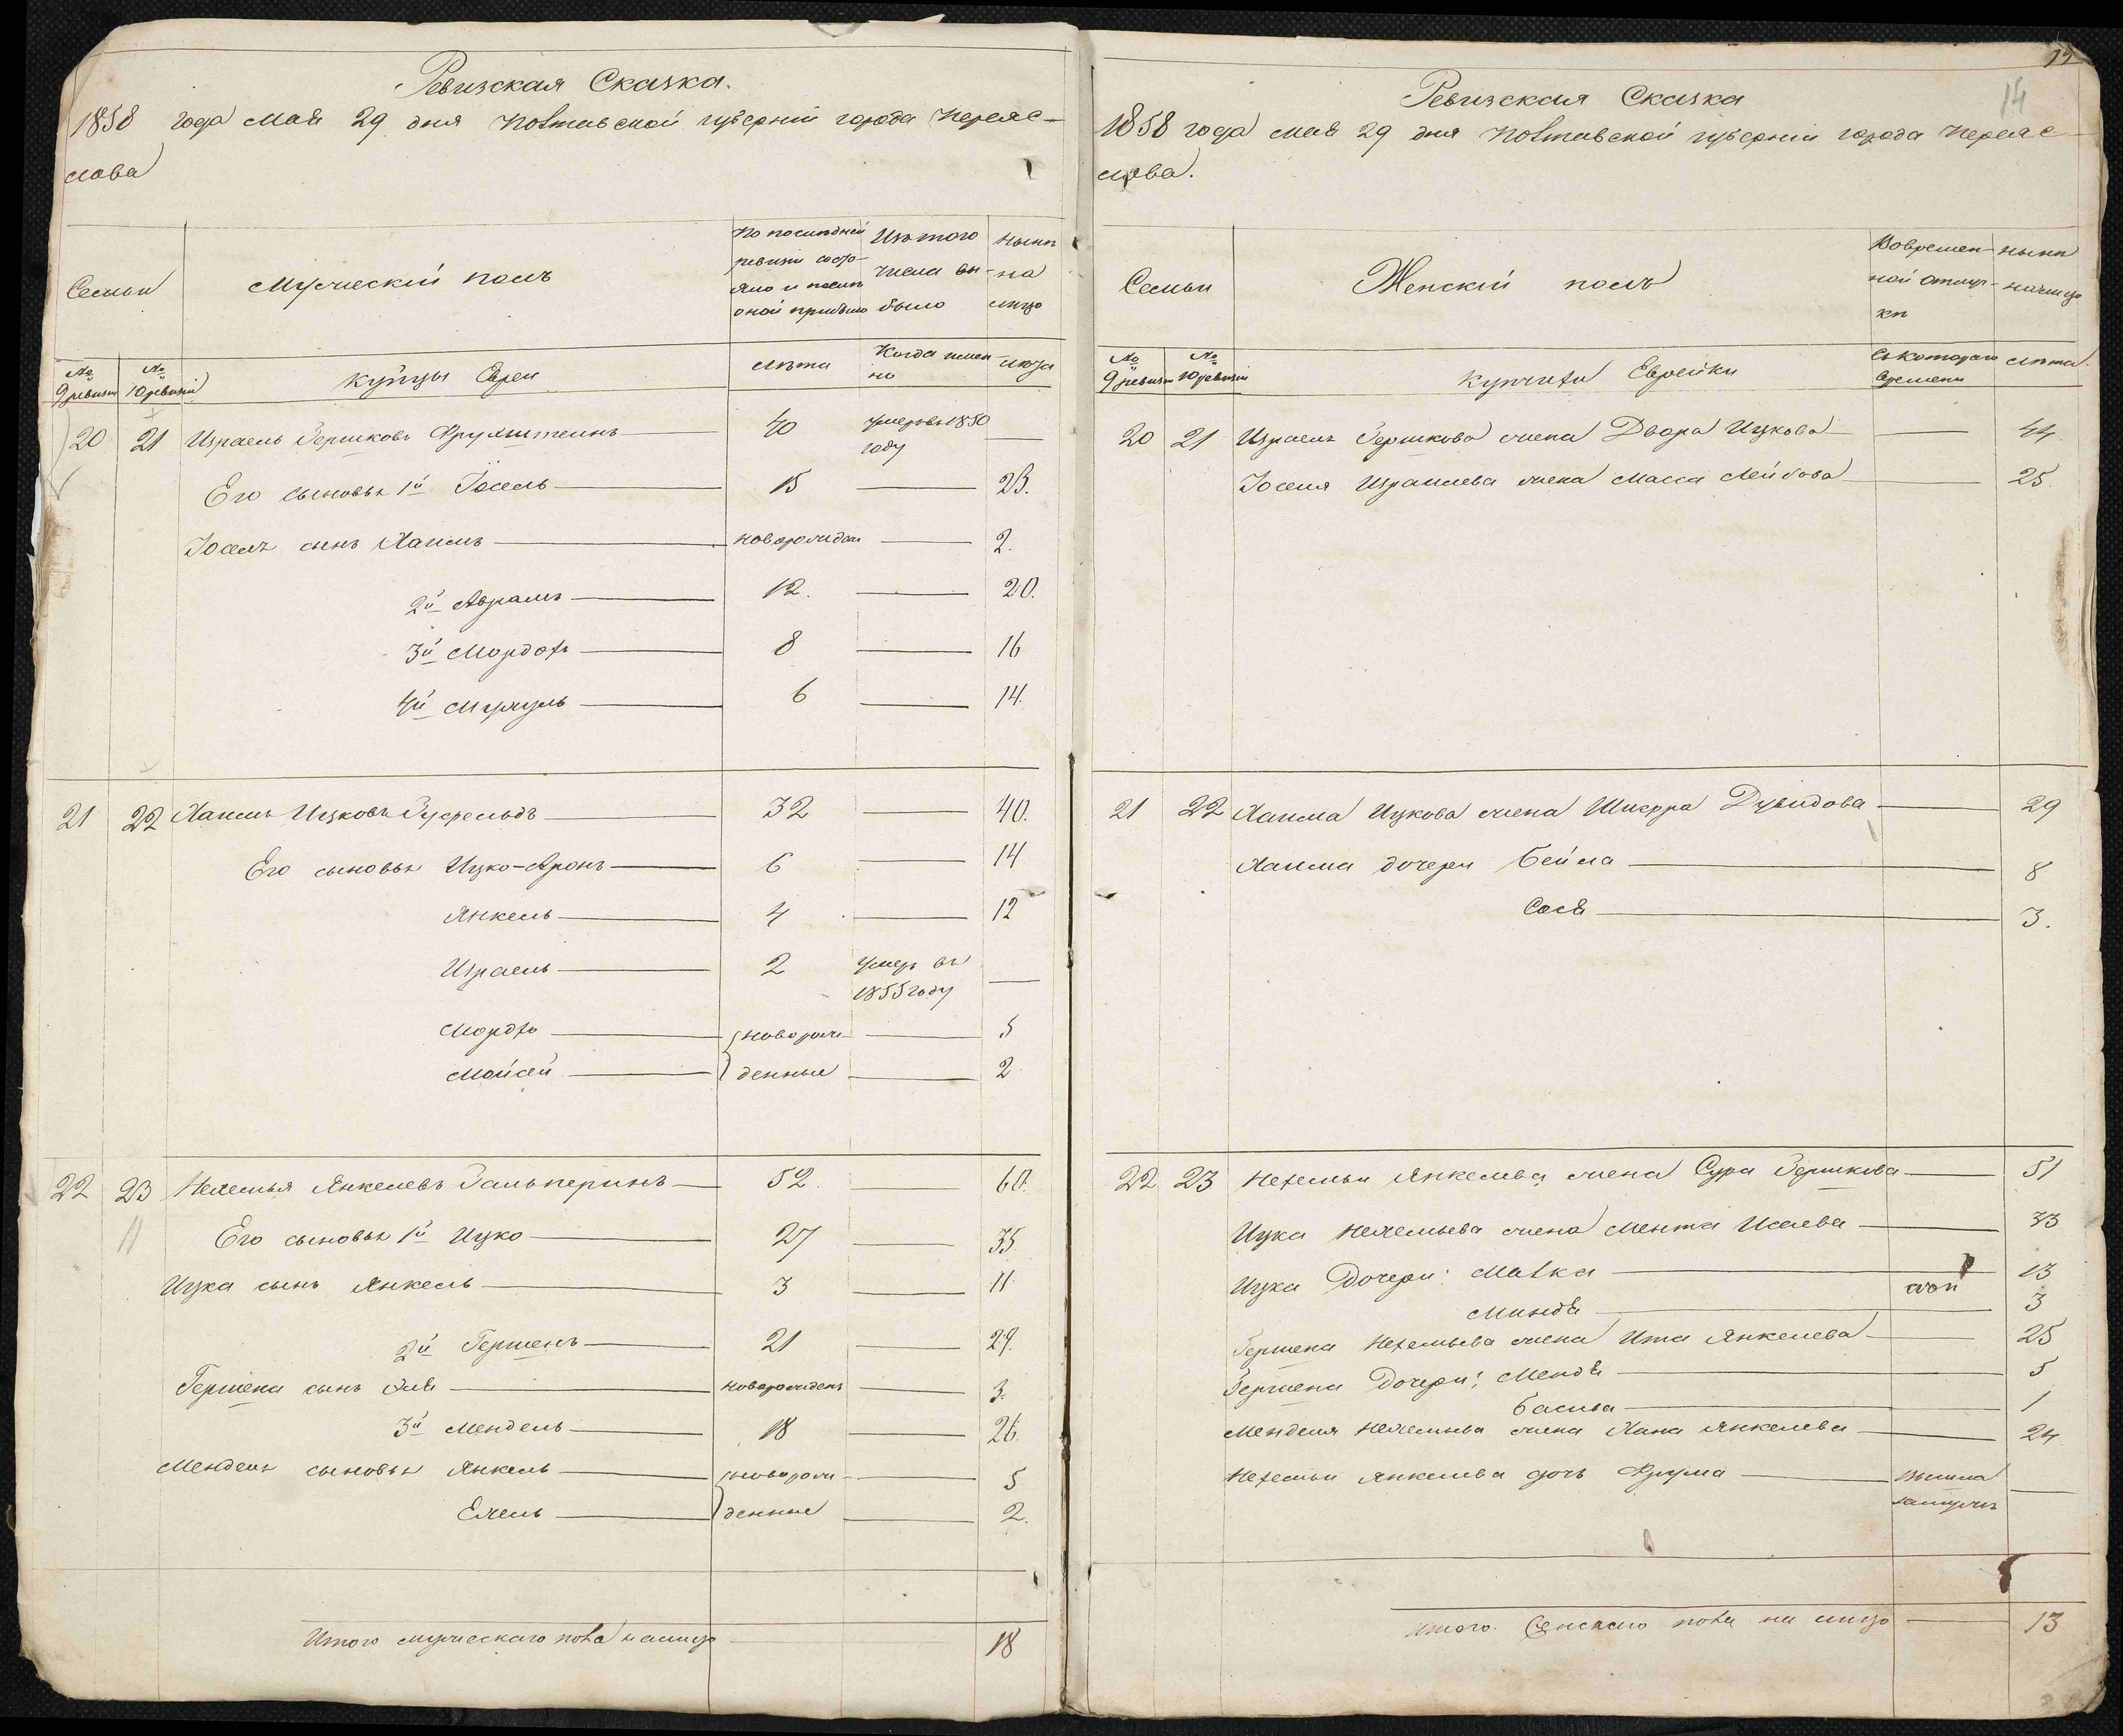 Ревизская Сказка.
1858 года Мая 29 дня Полтавской губернии города Переяс-
лова
Семьи
Мужеский полъ
По последней ревизи состо-яло и после оной прибыло
Изъ того числа вы-было
Ныне на лицо
№ 9 ревизи
№ 10 ревизии
Купцы Евреи
Лета
Когда имен-но
Лета
20 21 Израель Гершковъ Фрухштеинъ 40 умеръ въ 1850 году —
Его сыновья 1й Іосель 15 — 23.
Іоселя сынъ Хаимъ новорожденъ — 2.
2й Абрамъ 12. — 20.
3й Мордохъ 8 — 16
4й 6 — 14.
21 22 Хаимъ Ицковъ 32 — 40.
Его сыновья Ицко-Аронъ 6 — 14
Янкель 4 — 12
Израель 2 умеръ въ 1855 году —
Мордхо новорож- — 5
Мойсей денные — 2
22 23 Нехемья Янкелевъ Гальперинъ 52. 60.
11
Его сыновья 1й Ицко 27 — 35
Ицка сынъ Янкель 3 — 11
2й Гершенъ 21 — 29.
Гершена сынъ новорожденъ — 3.
3й Мендель 18 — 26.
Менделя сыновья Янкель новорож- — 5
Ехель денные — 2.
Итого мужескаго пола налицо 18
14
Ревизская Сказка
1858 года мая 29 дня Полтавской губернии города Переяс-
лова.
Семьи
Женскій полъ
Во времен-ной отлуч-ке
Ныне налицо
№ 9 ревизи
№ 10 ревизи
Купчихи Еврейки
Съ котораго времени
Лета.
20 21 Израеля Гершкова жена Двора Ицкова — 44
Іоселя Израилева жена Масса Лейбова — 25.
21 22 Хаима Ицкова жена Шифра Дувидова — 29
Хаима дочери Бейла — 8
Сося — 3.
22 23 Нехемьи Янкелева жена Сура Гершкова — 51
Ицка Нехемьева жена Мента Исаева — 33
Ицка Дочери: Малка — 13
Миндя — 3
Гершена Нехемьева жена Ита Янкелева — 25
Гершена Дочери: Мендя — 5
Басива — 1
Менделя Нехемьева жена Хана Янкелева — 24
Нехемьи Янкелева дочь Фрума вышла замужъ —
Итого Женскаго пола на лицо — 13